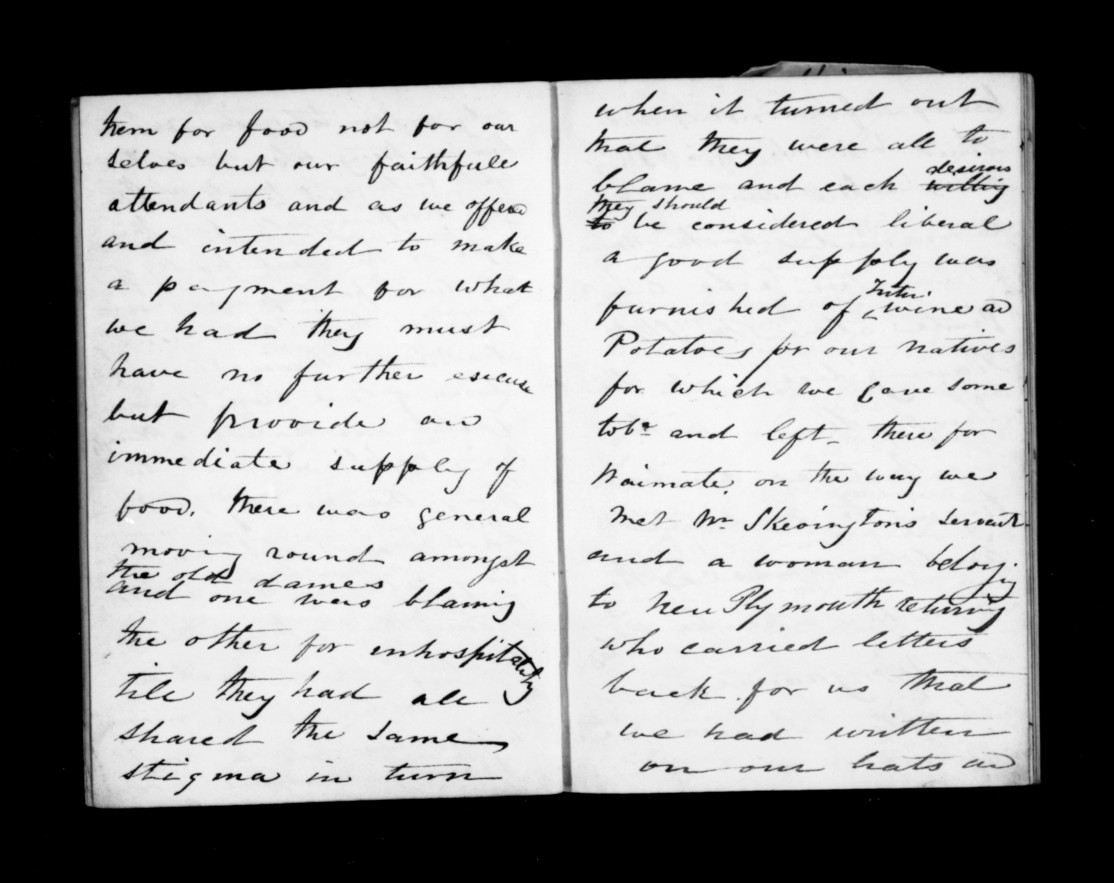 them for food not for our
selves but our faithfull
attendants and as we offered
and intended to make
a payment for what
we had they must
have no further excuse
but provide an
immediate supply of
food. there was general
moving round amongst
the old dames
and one was blaming
the other for inhospitality
till they had all
shared the same
stigma in turn
when it turned out
that they were all to
blame and each willing desirous
to they should be considered liberal
a good supply was
furnished of wine and
Potatoes for our natives
for which we gave some
tobo and left, there for
Waimate. on the way we
met Mr Skevington's servant
and a woman belonging
to New Plymouth returning
who carried letters
back for us that
we had written
on our hats and